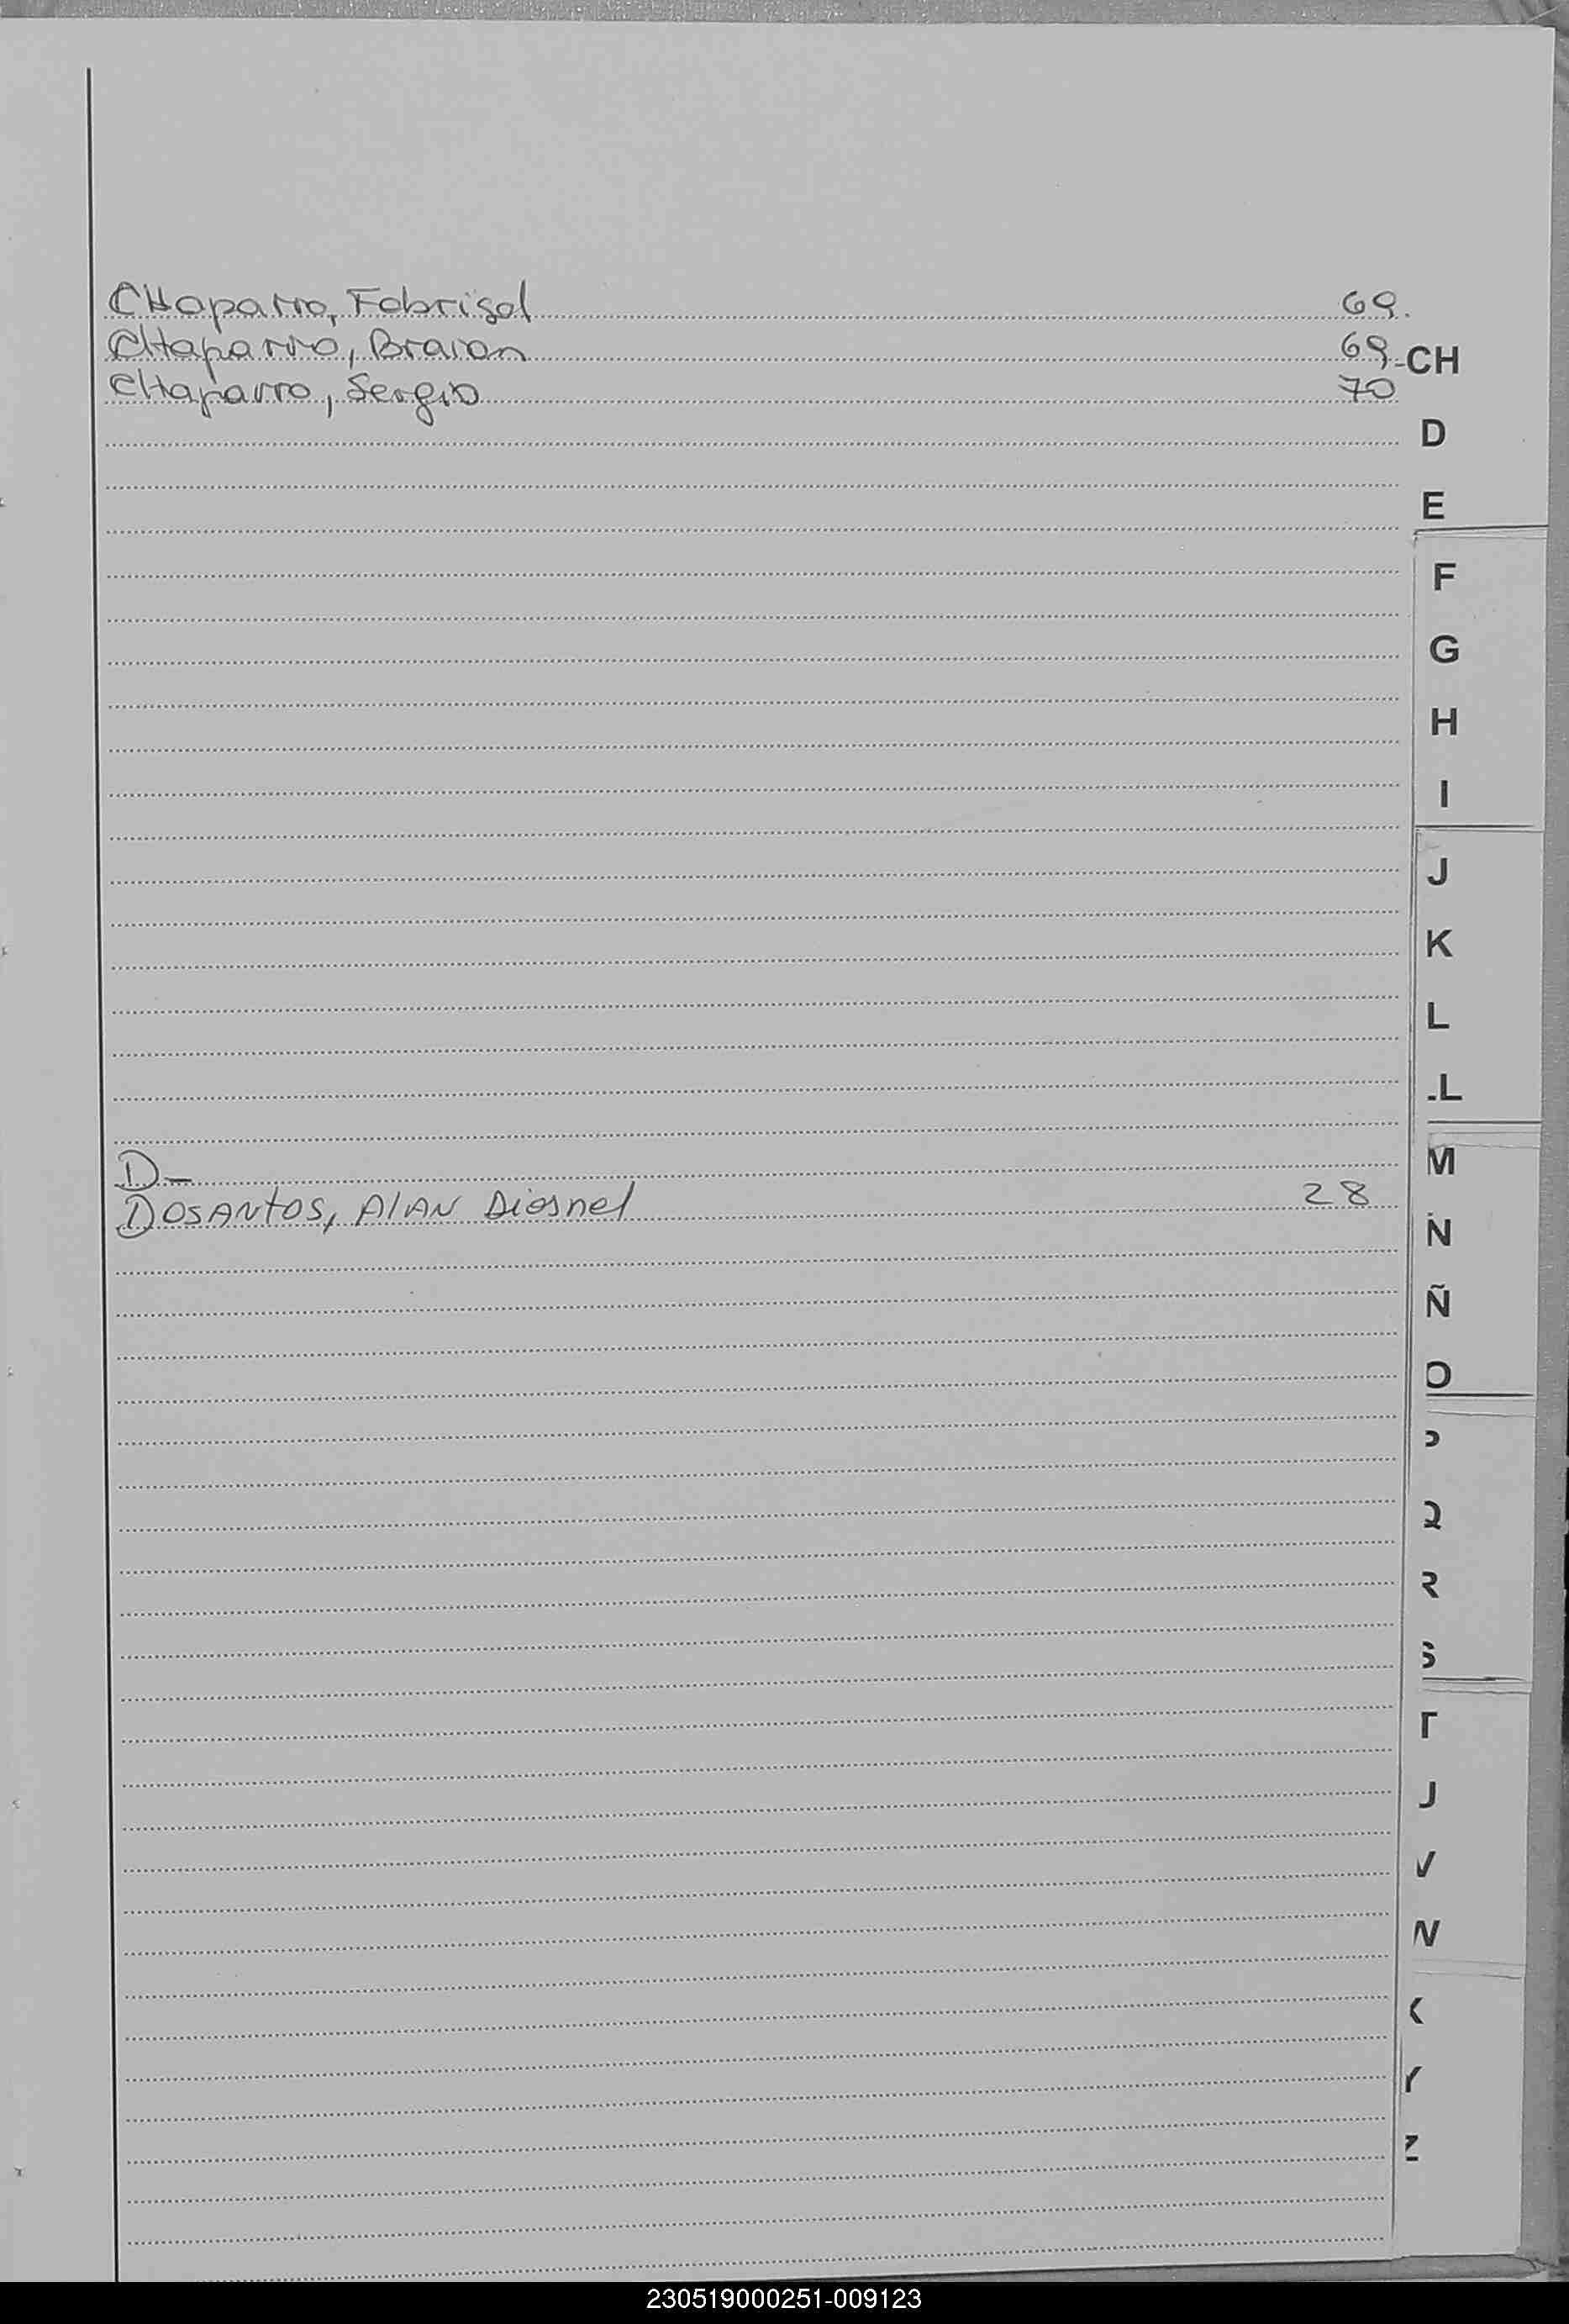 CHaparro, Fabrisol 69.
CHaparro, Braian 69-
CHaparro, Sergio 70
CH
D
E
F
G
H
I
J
K
L
.L
D-
M
DOSANTOS, AlAN Diosnel 28
N
Ñ
O
P
Q
R
S
T
U
V
W
X
Y
Z
230519000251-009123